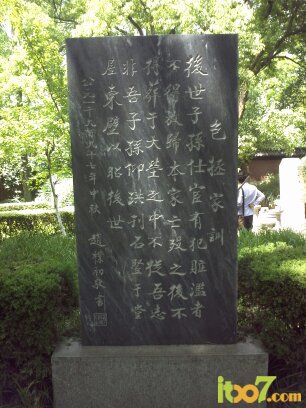 包拯家訓
後世子孫仕宦有犯贓濫者
不得放歸本家亡歿之後不
得葬于大塋之中不從吾志
非吾子孫仰珙刊石豎于堂
屋東壁以昭後世
公元一千九百九十七年中秋 趙樸初敬書
it007.com